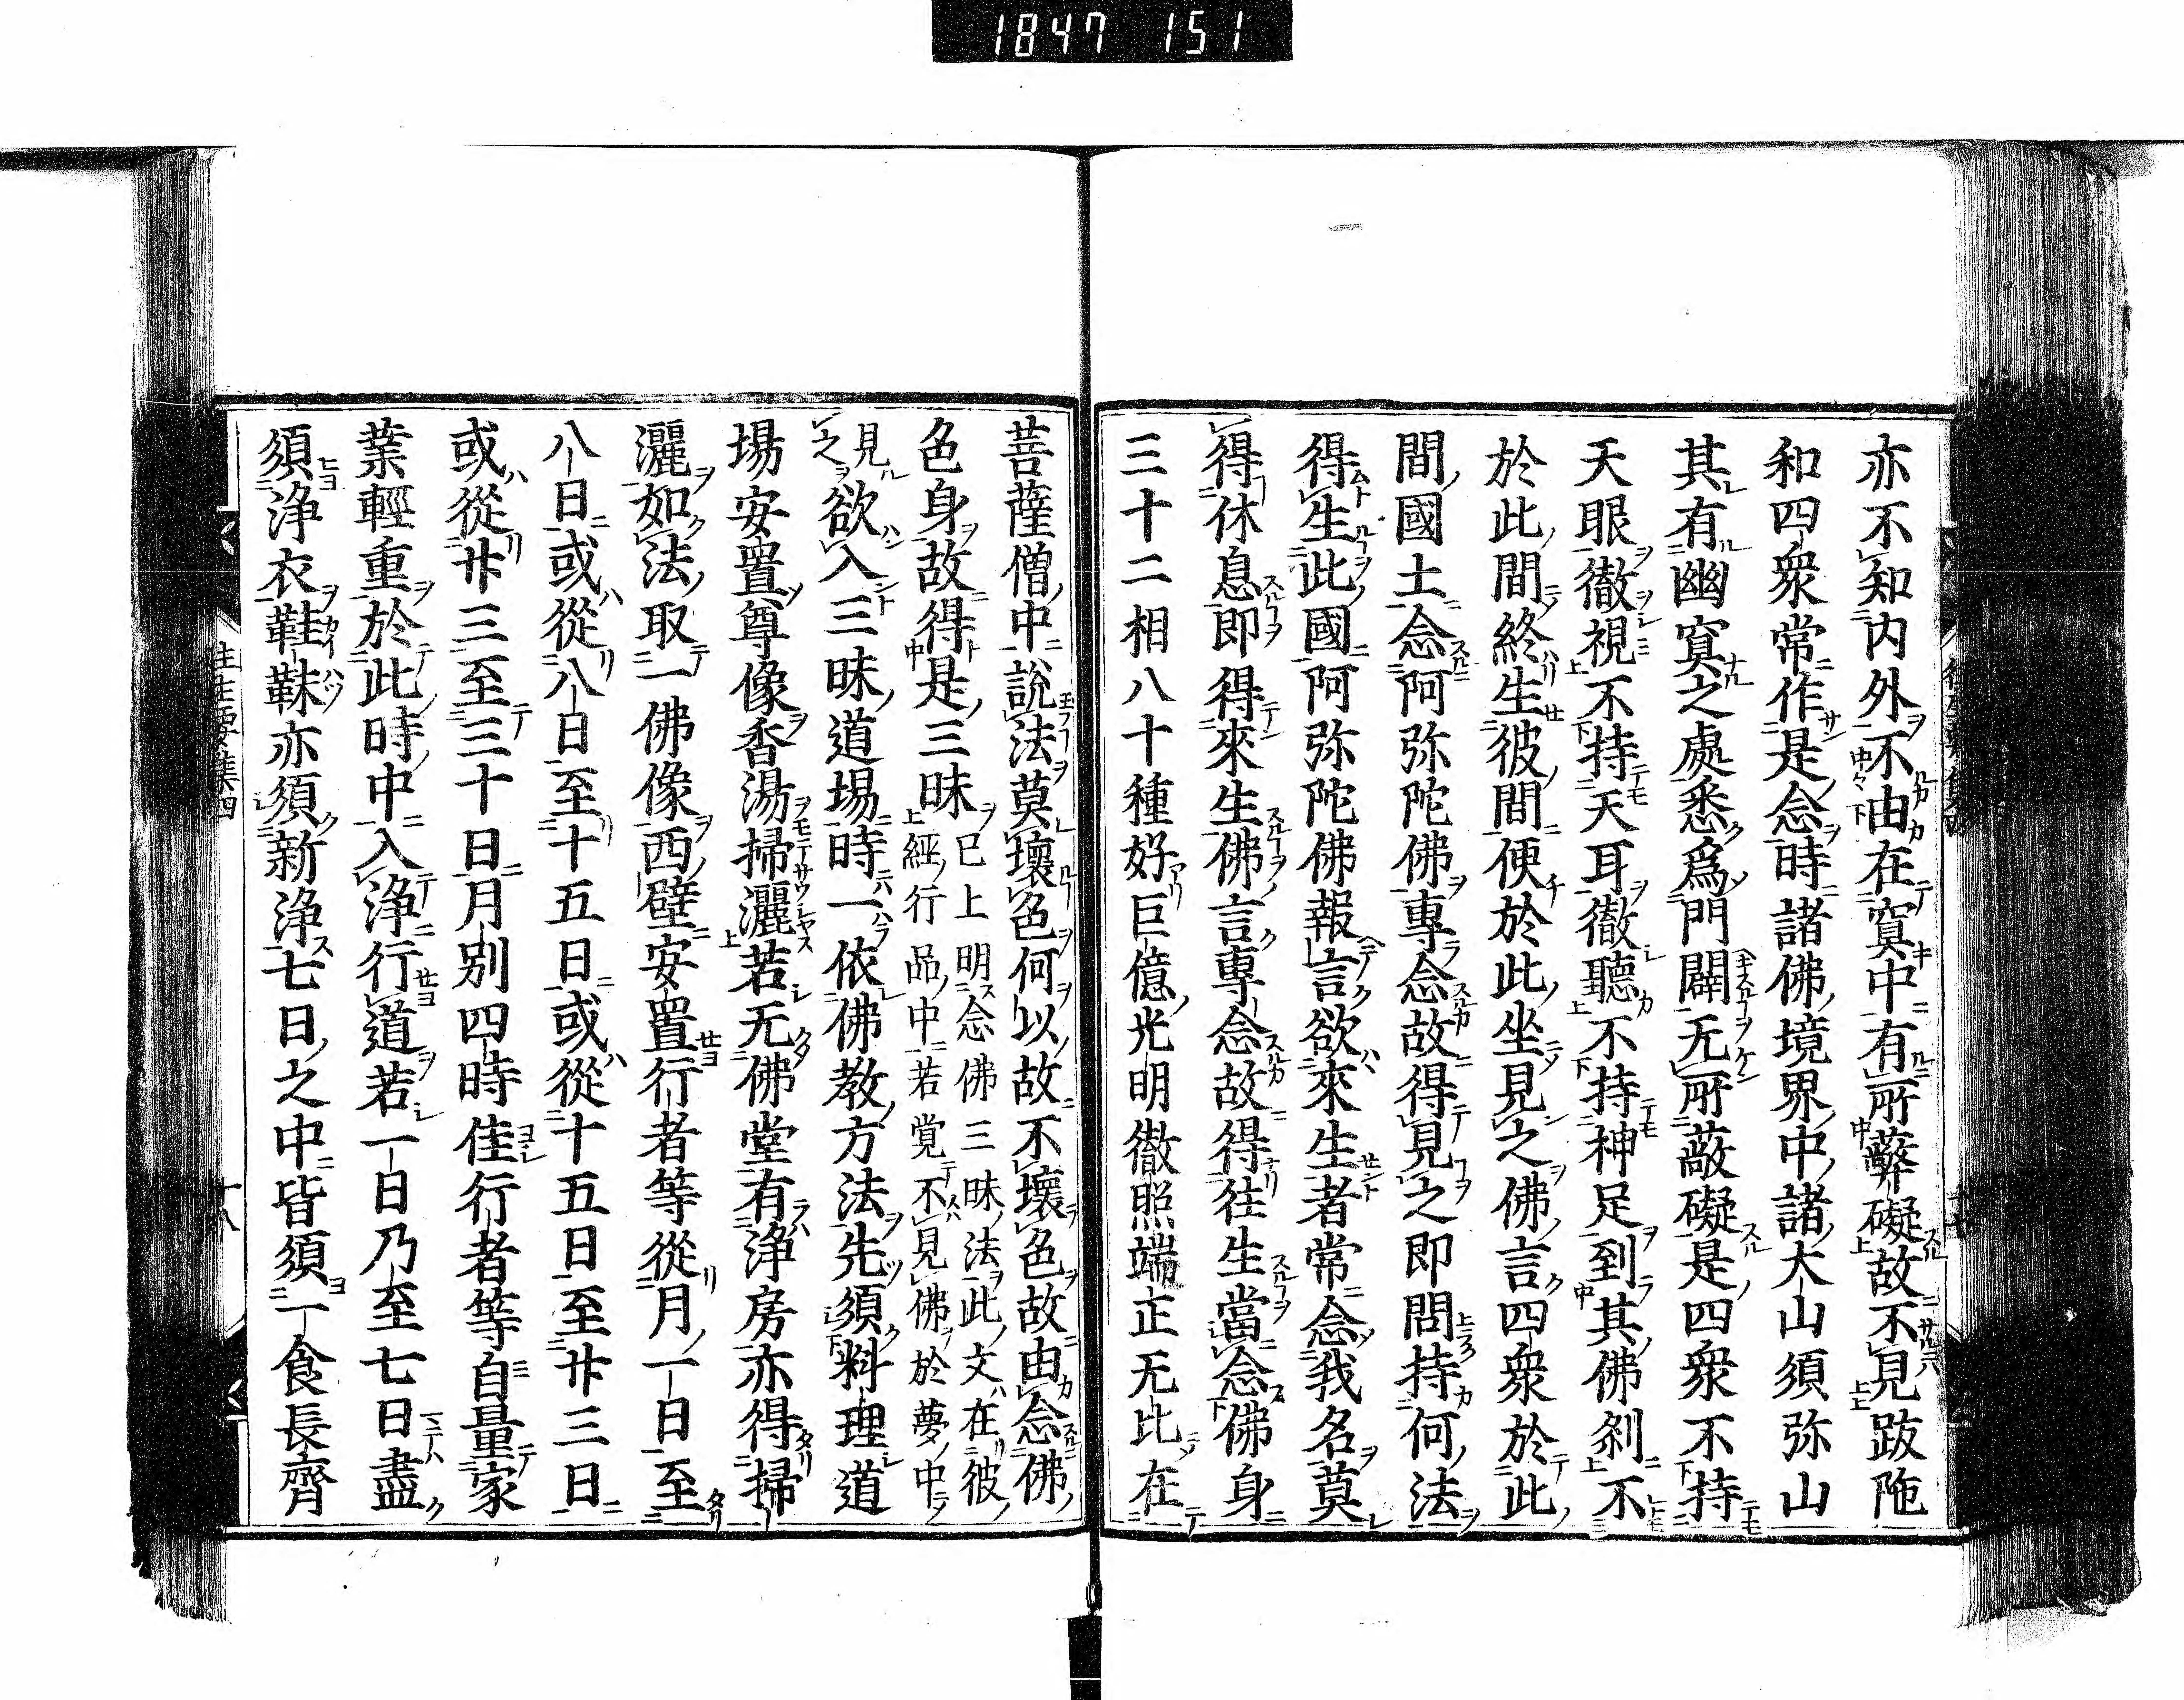 1847 151
亦不知内外不由在寞中有所蔽礙故不見跋陁
和四衆常作是念時諸佛境界中諸大山須弥山
其有幽寞之處悉爲門闢无所蔽礙是四衆不持
天眼徹視不持天耳徹聽不持神足到其佛刹不
於此間終生彼間便於此坐見之佛言四衆於此
間國土念阿弥陀佛專念故得見之即問持何法
得生此國阿弥陀佛報言欲來生者常念我名莫
得休息即得來生佛言專念故得往生當念佛身
三十二相八十種好巨億光明徹照端正无比在
菩薩僧中說法莫壞色何以故不壞色故由念佛
色身故得是三昧已上明念佛三昧法此文在彼
經行品中若覚不見佛於夢中
見之欲入三昧道場時一依佛教方法先須料理道
場安置尊像香湯掃灑若无佛堂有淨房亦得掃
灑如法取一佛像西壁安置行者等從月一日至
八日或從八日至十五日或從十五日至廿三日
或從廿三至三十日月別四時佳行者等自量家
業輕重於此時中入淨行道若一日乃至七日盡
須淨衣鞋靺亦須新淨七日之中皆須一食長齊
往生要集四
十八